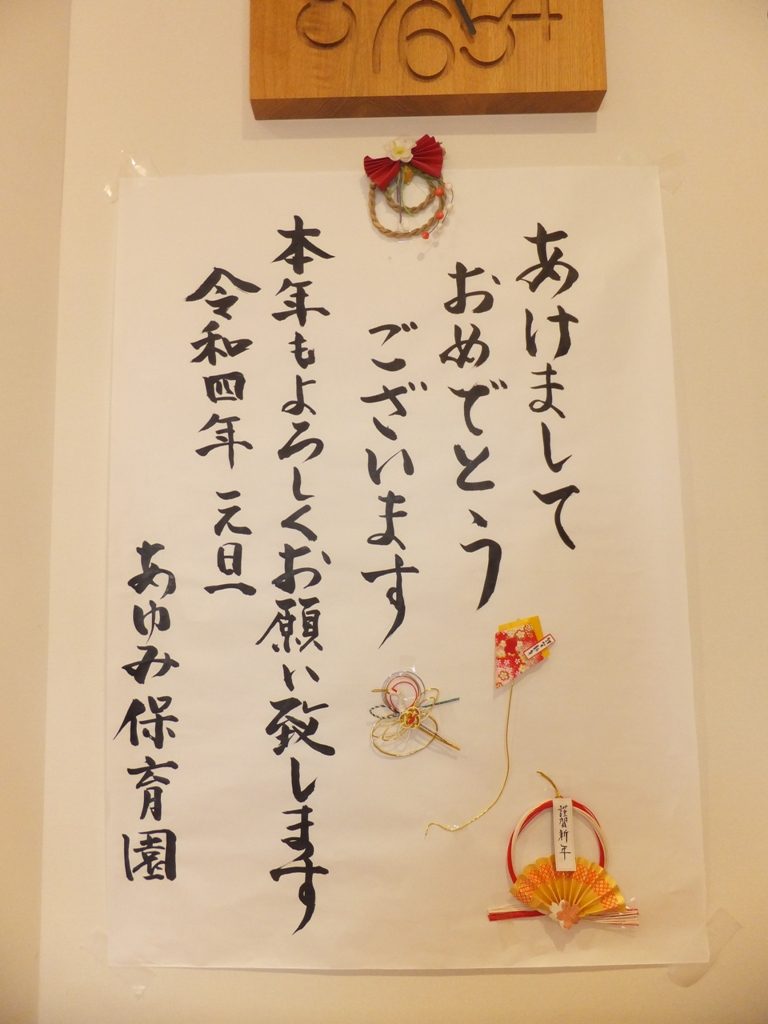 あけまして
おめでとう
ございます
本年もよろしくお願い致します
令和四年 元旦
あゆみ保育園
謹賀新年